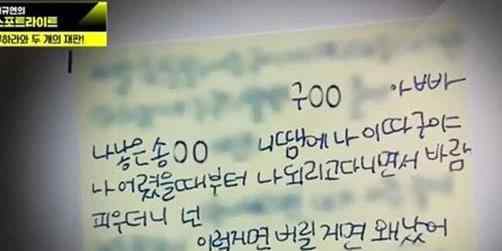 규연의
스포트라이트
하라와 두 개의 재판!
구OO 아빠
나낳은 송OO 니땜에 나 이따구야
나 어렸을때부터 나 데리고다니면서 바람
피우더니 넌
이럴거면 버릴거면 왜낳았어